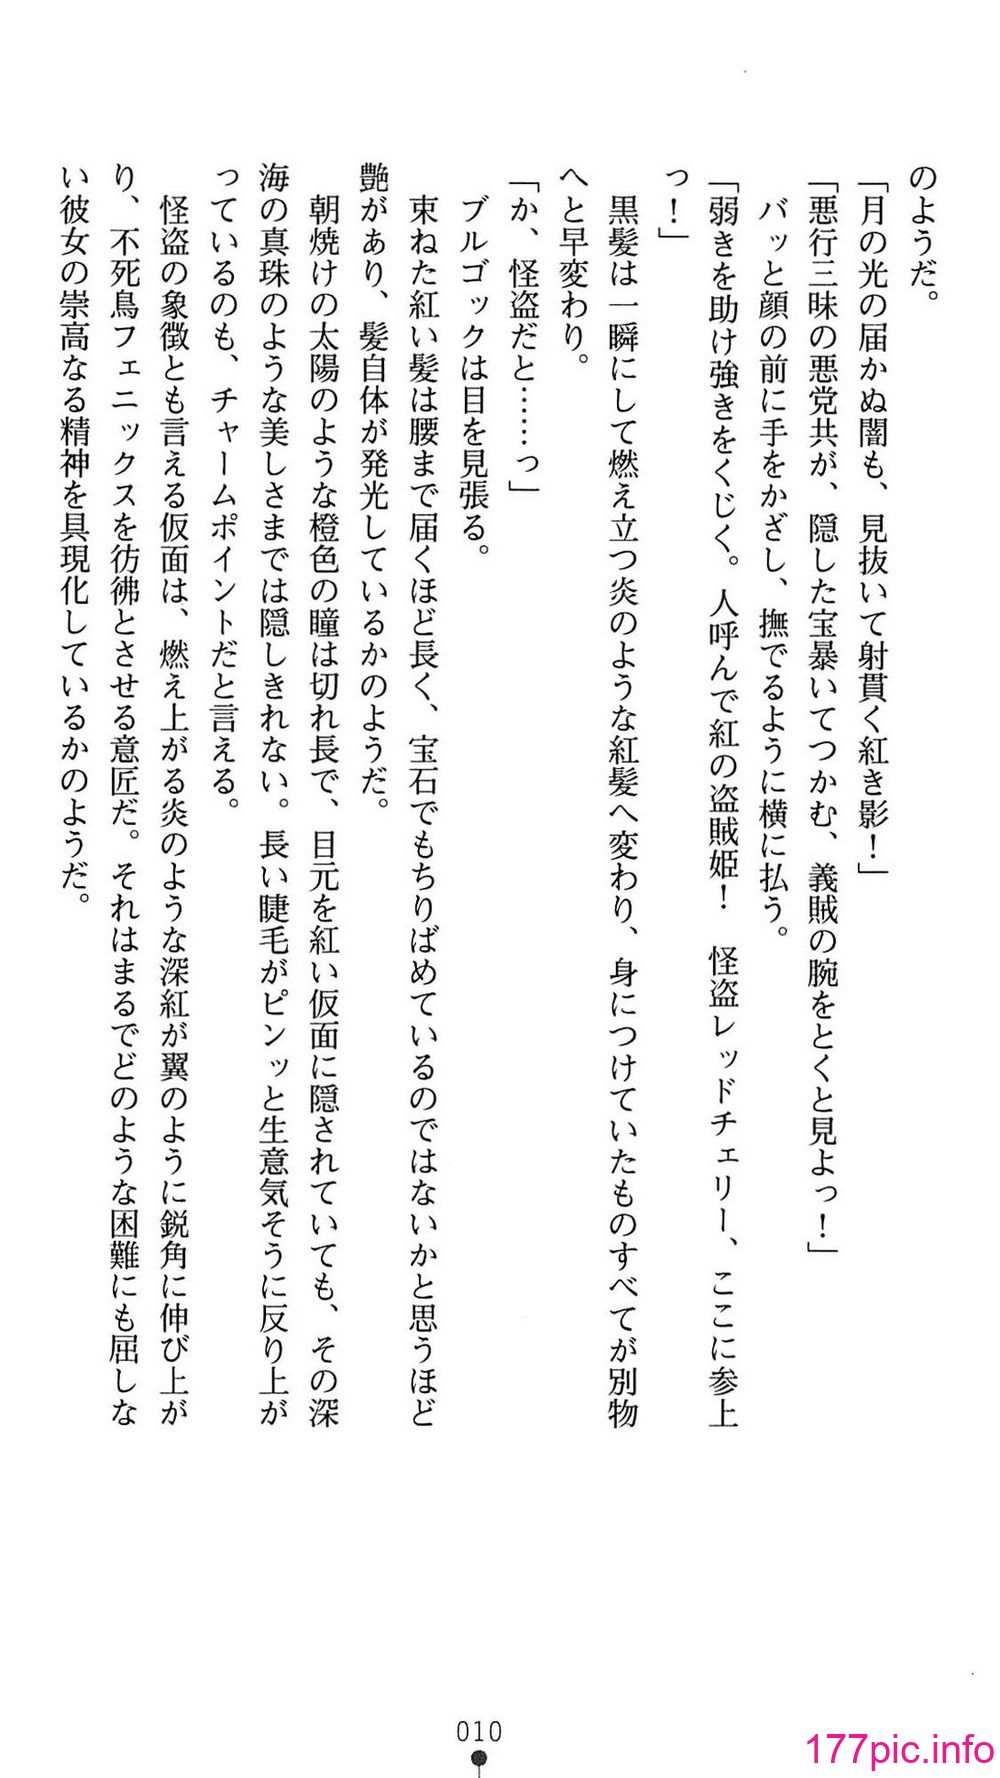 のようだ。
「月の光の届かぬ闇も、見抜いて射貫く紅き影！」
「悪行三昧の悪党共が、隠した宝暴いてつかむ、義賊の腕をとくと見よっ！」
バッと顔の前に手をかざし、撫でるように横に払う。
「弱きを助け強きをくじく。人呼んで紅の盗賊姫！　怪盗レッドチェリー、ここに参上
っ！」
黒髪は一瞬にして燃え立つ炎のような紅髪へ変わり、身につけていたものすべてが別物
へと早変わり。
「か、怪盗だと……っ」
ブルゴックは目を見張る。
束ねた紅い髪は腰まで届くほど長く、宝石でもちりばめているのではないかと思うほど
艶があり、髪自体が発光しているかのようだ。
朝焼けの太陽のような橙色の瞳は切れ長で、目元を紅い仮面に隠されていても、その深
海の真珠のような美しさまでは隠しきれない。長い睫毛がピンッと生意気そうに反り上が
っているのも、チャームポイントだと言える。
怪盗の象徴とも言える仮面は、燃え上がる炎のような深紅が翼のように鋭角に伸び上が
り、不死鳥フェニックスを彷彿とさせる意匠だ。それはまるでどのような困難にも屈しな
い彼女の崇高なる精神を具現化しているかのようだ。
010
177pic.info